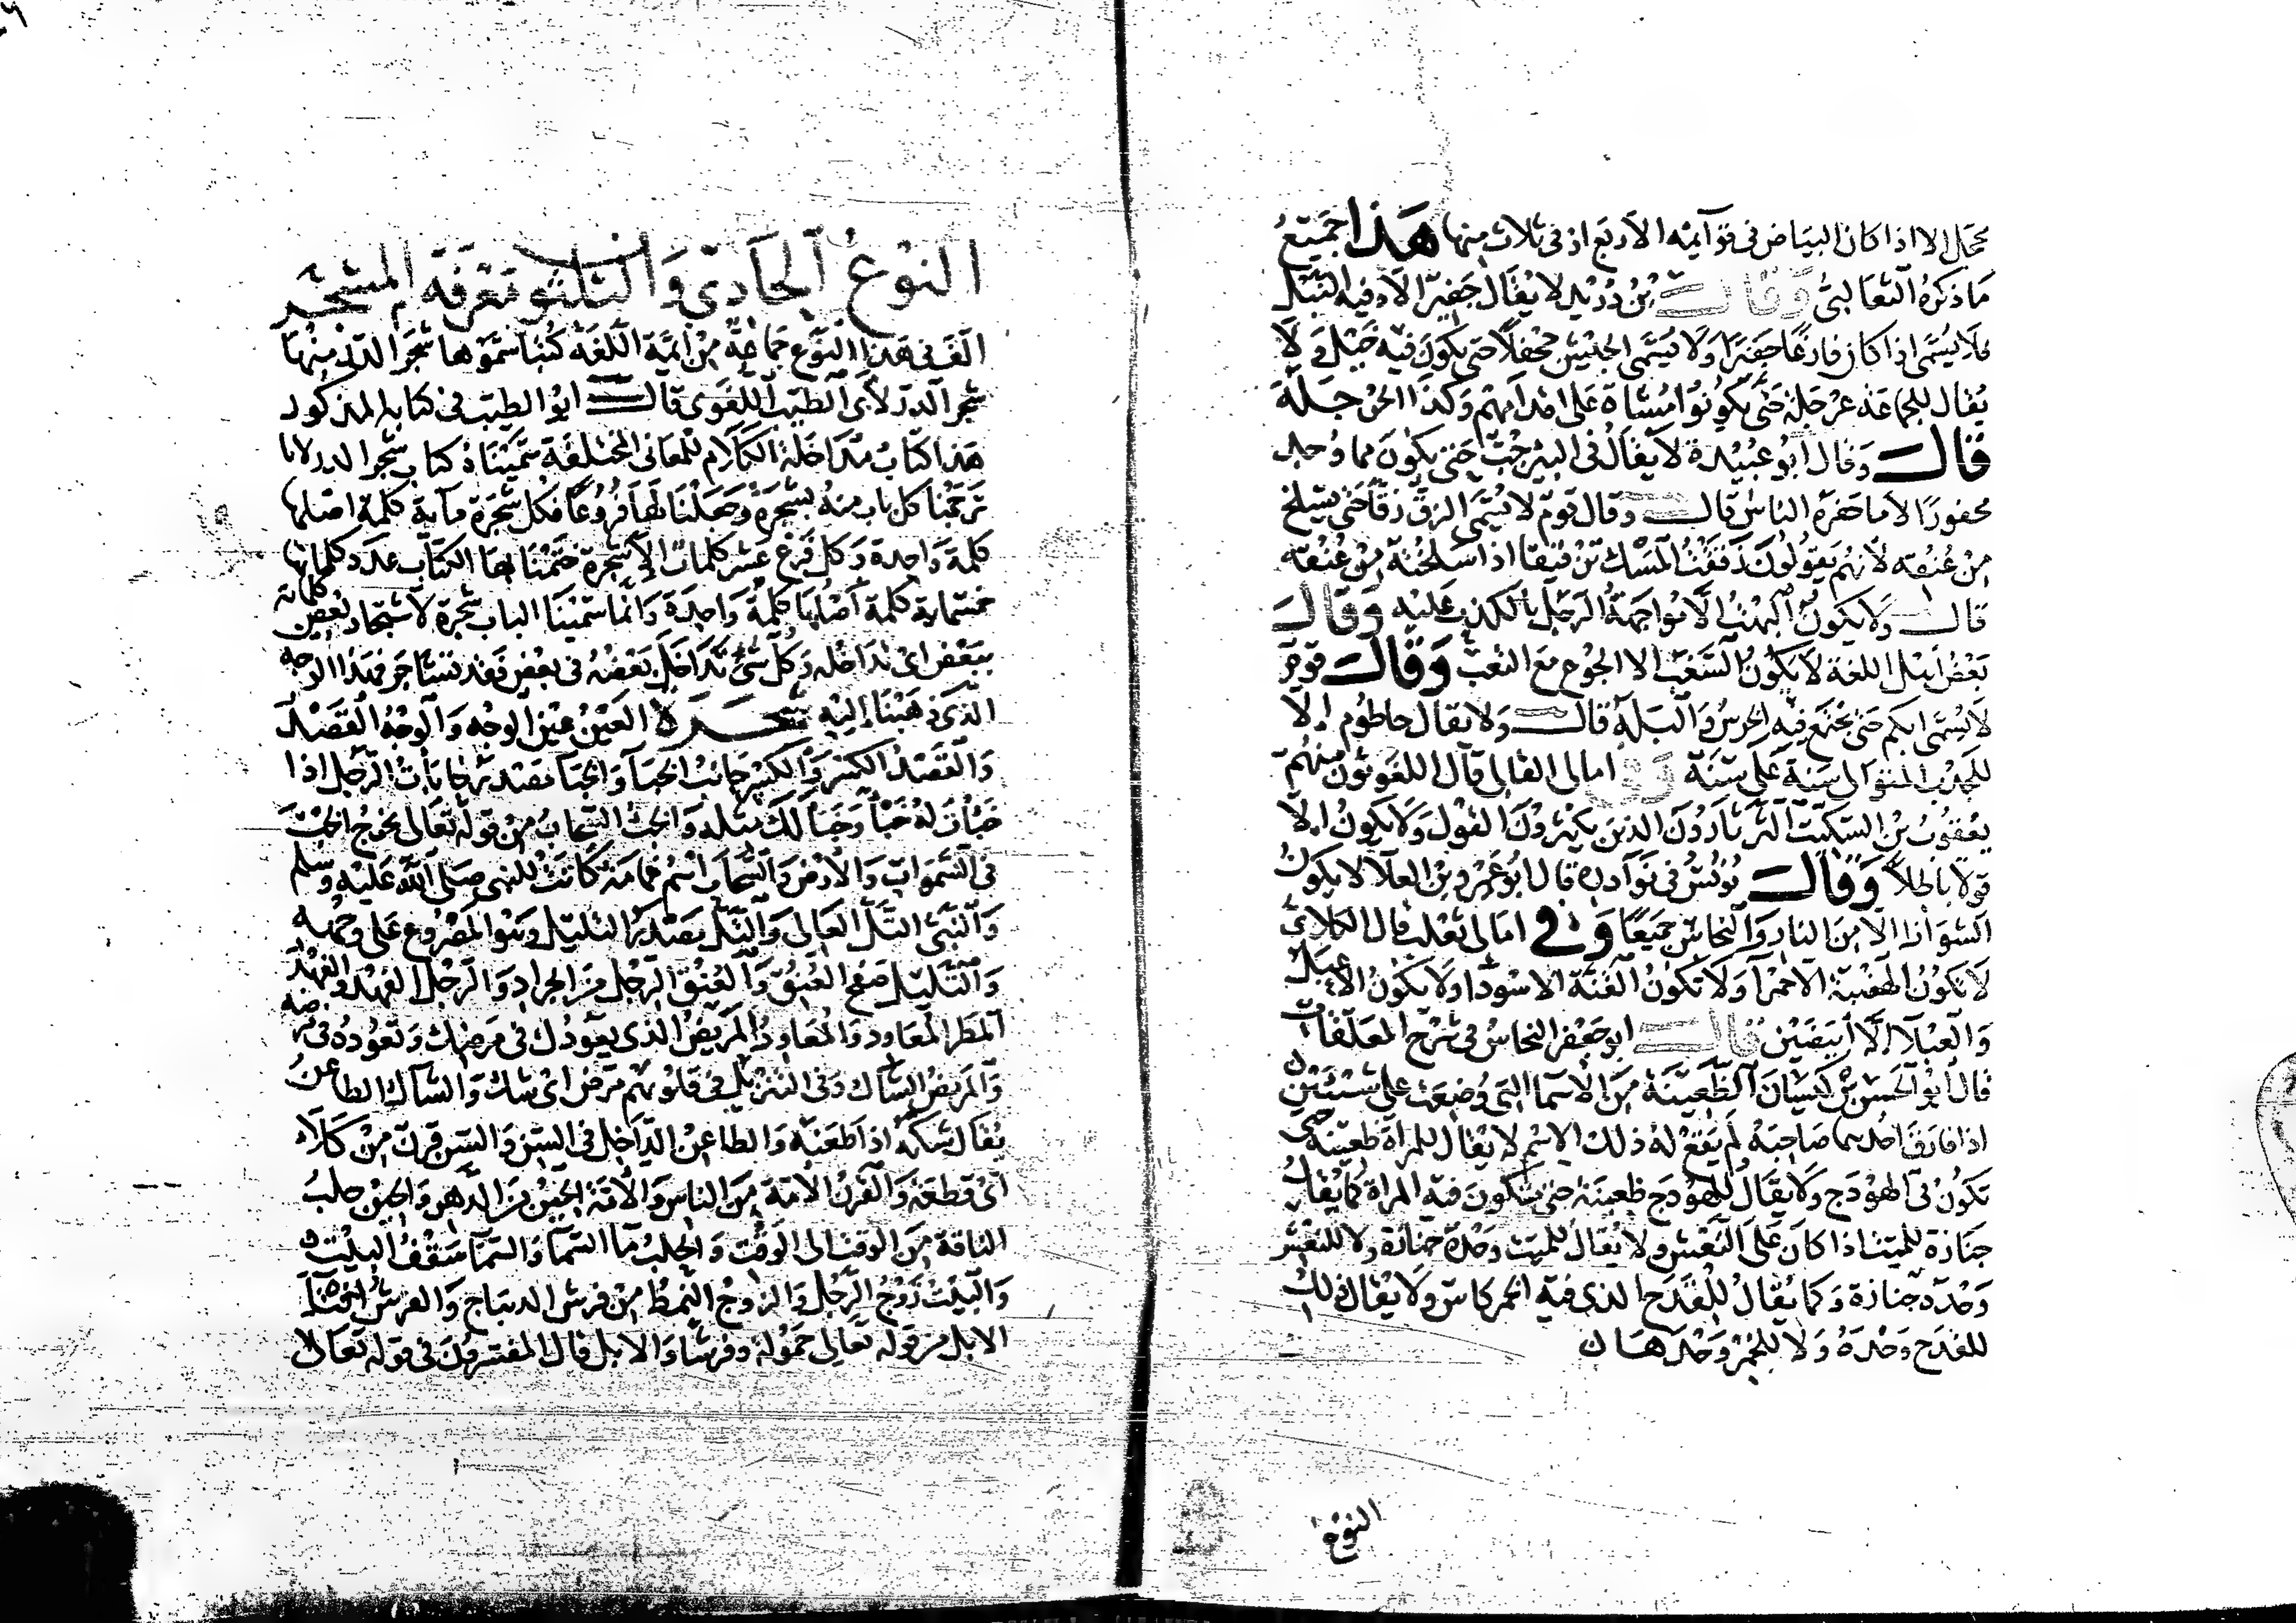 محجل الا اذا كان البياض في قوآيمه الاربع او في ثلاث منها هَذا جَميعُ
مَا ذكرهُ الثعالبيُّ وقال بْنُ دُرَيْد لا يُقَال جَفِيرٌ الا وفيه النَّبْل
فلا يُسَمَّى اذا كان فارغًا جَفيرًا وَلا يُسَمَّى الجَيْش جحفلاً حتى يكون فيه خَيْل وَلا
يُقال للجماعَة عرْجَلة حَتَّى يكونُوا مُشاة عَلى اقدامهِم وَكَذا الحرْجَلة
قال وَقال ابُو عُبيْدة لا يُقَالُ في البير جُبّ حَتى يكونَ مما وُجد
محفورًا لا ما حَفَرهُ الناس قال وقال قوم لا يُسَمَّى الزق زقًا حَتى يسلخ
مِنْ عُنُقه لانهُم يَقولُونَ زَققتُ المَسْك تزقيقا اذا سَلختهُ مِنْ عُنُقه
قال وَلا يكونُ البُهْتُ الا مُواجَهَةُ الرجُل بالكذب عَليْه وَقال
بَعْضُ اهْل اللغة لا يكونُ السَّغَب الا الجُوع مع التعَب وَقال قوم
لا يُسَمَّى ابكم حَتى يجْتَمع فيه الخرسُ وَالبَلَهُ قال وَلا يقال حاطُوم الا
للجدْب المتوَالى سَنة عَلى سَنَة وفي امالى القالى قال اللغويونَ منهُم
يعْقوبُ بْن السكيت الثرثارُونَ الذين يكثرونَ القوْل وَلا يكونُ الا
قولا باطلا وَقال يُونُسُ في نَوَادره قال ابُو عَمْرو بن العلا لا يكونُ
الشوَاظ الا مِنَ النار وَالنحاس جَميعًا وَفي امالى ثعلب قال الكلابيُّ
لا تكونُ الهضْبَة الا حمْرا وَلا تكونُ القُنَّة الا سَوْدا وَلا يكونُ الاعْبَل
وَالعَبْلا الا ابيَضَيْن قال ابو جَعْفر النحاسُ في شرْح المعَلقات
قال ابُو الحَسَن بْن كيسَانَ الظعِينَة مِنَ الاسْما التى وُضعَت على شيْئين
اذا فارَقَ احَدهما صَاحِبَهُ لم يَقع لهُ ذلك الاسْم لا يُقال للمراة ظعِينة حتى
تكونُ في الهَوْدَج وَلا يُقَالُ للهَوْدَج ظعِينَة حتى تكونَ فيه المراة كما يُقالُ
جنازة للميت اذا كان عَلى النعْش ولا يُقال للميت وَحْدهُ جنازة ولا للنعْش
وَحْده جنازة وكما يُقالُ للقَدَح الذى فيه الخمر كاس وَلا يُقال ذلك
للقدَح وَحْدَهُ وَلا للخمْر وَحْدَهَا
النوع
النوْعُ الحادي وَالثلثون مَعْرفَة المشجَّر
الف في هَذا النَّوْع جَمَاعَةٌ مِنْ ايمَّة اللغَة كُتبًا سَمَّوْها شجَر الدر مِنْهَا
شجر الدرّ لابى الطيّب اللغَوى قال ابو الطيب في كتابه المذكور
هَذا كتابُ مُداخَلة الكلام للمعَانى المختلفَة سَمَّيْنَاهُ كتاب شجَر الدر لانا
تَرْجَمْنا كل باب منهُ بشجَرَة وَجَعَلْنا لهَا فرُوعًا فكل شجَرة مآية كلمة اصْلها
كلمة وَاحدة وَكل فَرْع عشر كلمات الا شجرة ختَمْنا بهَا الكتاب عدد كلماتها
خمسماية كلمة اصْلهَا كلمةٌ وَاحدَة وَانما سَمَّيْنا الباب شجرة لاشتجار بعْض كلماته
ببَعْض اى تداخله وَكل شئ تَدَاخل بَعْضهُ في بعْض فقد تشاجَر فهَذا الوَجه
الذى ذهَبْنا اليْه شجَرَة العَيْنُ عَيْن الوجْه وَالوجْهُ القَصْد
وَالقَصْدُ الكسْر وَالكسْرُ جَانبُ الخبا وَالخبا مَصْدر خَابَاتُ الرجُل اذا
خَبَأتَ لهُ خَبأ وَخبأ لَك مثلهُ وَالخبْ السَّحابُ مِن قوله تَعَالى يخرجُ الخبْ
في السَّموات وَالارْض وَالسَّحاب اسْم عمامَة كانَتْ للنبى صَلى اللهُ عَليْه وَسلم
وَالنَّبى التَّلّ العَالى وَالتَّلّ مَصْدرُ التليل وَهُوَ المَصْرُوع عَلى وَجْهه
وَالتَّليل صَفْح العُنُق وَالعُنُق الرجْل مِنَ الجراد وَالرجْل العَهْد وَالعَهْدُ
المطر المُعَاود وَالمُعَاودُ المَريضُ الذى يعودُك في مَرَضك وَتَعُودُهُ في مَرَضه
وَالمَريضُ الشاك وَفى التنزيل في قلوبهم مَرَض اى شك وَالشاك الطاعنُ
يُقَال شكهُ اذا طَعَنَهُ وَالطاعِنُ الدَّاخِل في السّن وَالسن قرن مِنْ كلا
اى قطعَة وَالقرنُ الامَّة مِنَ الناس وَالامَّة الحِينُ مِنَ الدَّهْر وَالحِينُ حلبُ
الناقة مِنَ الوقت الى الوَقْت وَالحلبُ ما السَّمَا وَالسَّمَا سَقْفُ البيْت
وَالبَيْتُ زَوْجُ الرَّجُل وَالزوْجُ النَّمَط مِنْ فرش الديباج وَالفرشُ افتا
الابل مِن قوله تعَالى حَمُولة وفرشا وَالابل قال المفسرونَ في قوله تعَالى